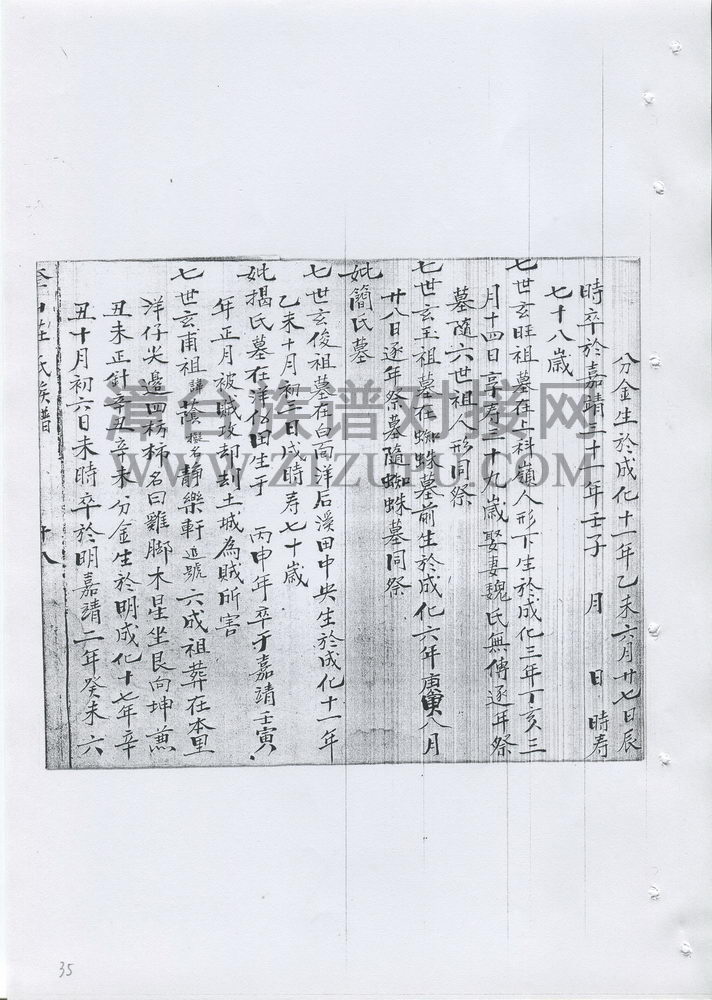 分金生於成化十一年乙未六月廿七日辰
時卒於嘉靖三十一年壬子 月 日 時寿
七十八歲
七世玄旺祖墓在上科嶺人形下生於成化三年丁亥三
月十四日享寿三十九歲娶妻魏氏無傳逐年祭
墓隨六世祖人形同祭
七世玄玉祖墓在蜘蛛墓前生於成化六年庚寅八月
廿八日逐年祭墓隨蜘蛛墓同祭
妣簡氏墓
七世玄俊祖墓在白面洋后溪田中央生於成化十一年
乙未十月初二日戌時寿七十歲
妣揭氏墓在洋公田生于 丙申年卒于嘉靖壬寅
年正月被賊攻却刦土城為賊所害
七世玄甫祖諱隂 名靜樂軒追號六成祖葬在本里
洋仔尖邊四柄柿名曰雞脚木星坐艮向坤兼
丑未正針辛丑辛未分金生於明成化十七年辛
丑十月初六日未時卒於明嘉靖二年癸未六
庄氏族譜 十八
漳台族谱对接网
WWW.ZTZUPU.COM
35